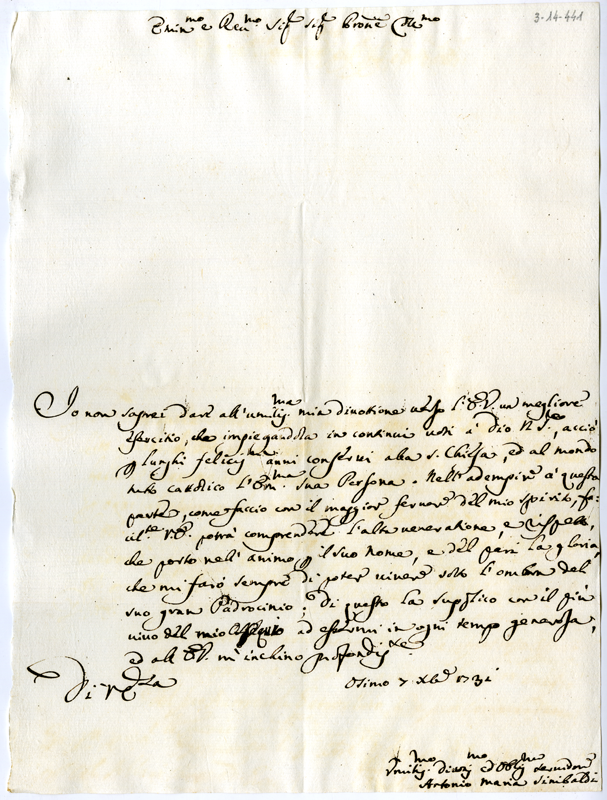 3-14-441
Emin.mo e Reu.mo Sig.r Sig.r Prone Col.mo
Io non saprei dare all'umiliss.ma mia diuotione uerso l'E.V. un megliore
esercitio, che impiegandola in continui uoti à Dio N.S.re, acciò
p lunghi felicis.mi anni conserui alla S. Chiesa, ed al mondo
tutto cattolico l'Em.ma sua Persona. Nell'adempire à questa
parte, come faccio con il maggior feruore del mio spirito, fa-
cil.te V.E. potrà comprendere l'alta ueneratione, e rispetto,
che porto nell'animo p il suo nome, e del pari la gloria,
che mi farò sempre di poter uiuere sotto l'ombra del
suo gran Padrocinio; Di questo la supplico con il più
uiuo del mio ossequio ad essermi in ogni tempo generosa,
ed all'E.V. m'inchino profondis.te
Di V.E.za
Osimo 7 Xbre 1731
Umilis.mo Diuotis.mo ed Oblig.mo Seruidore
Antonio Maria Sinibaldi